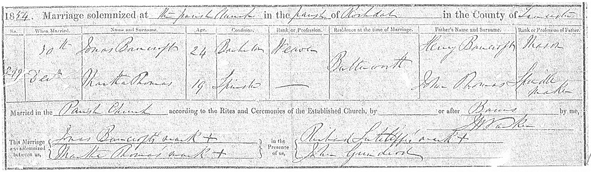 1854. Marriage solemnized at the parish church in the parish of Rochdale in the County of Lancaster
No. When Married. Name and Surname. Age. Condition. Rank or Profession. Residence at the time of Marriage. Father's Name and Surname. Rank or Profession of Father.
30th Jonas Bancroft 24 Bachelor Weaver Butterworth Henry Bancroft Mason
219 Decr Martha Thomas 19 Spinster — John Thomas Maker
Married in the Parish Church according to the Rites and Ceremonies of the Established Church, by or after Banns by me,
This Marriage was solemnized between us,
Jonas Bancroft's mark +
Martha Thomas's mark +
in the Presence of us,
Richard Sutcliffe's mark +
John Grindrod